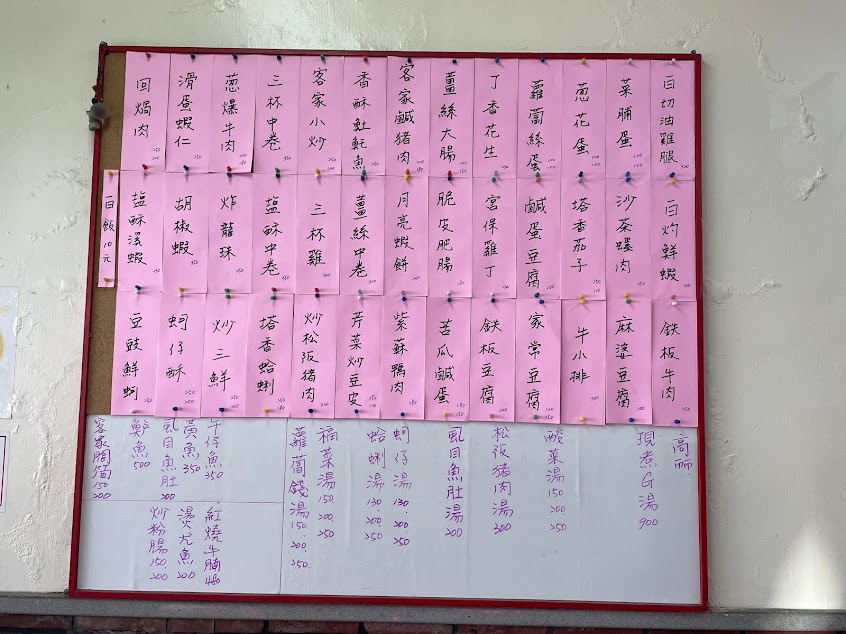 白切油雞腿
菜脯蛋
蔥花蛋
蘿蔔絲蛋
丁香花生
薑絲大腸
客家鹹豬肉
香酥魠魠魚
客家小炒
三杯中卷
蔥爆牛肉
滑蛋蝦仁
回焗肉
白灼鮮蝦
沙茶螺肉
塔香茄子
鹹蛋豆腐
宮保雞丁
脆皮肥腸
月亮蝦餅
薑絲中卷
三杯雞
塩酥中卷
炸龍珠
胡椒蝦
塩酥溪蝦
白飯10元
鉄板牛肉
麻婆豆腐
牛小排
家常豆腐
鉄板豆腐
苦瓜鹹蛋
紫蘇鴨肉
芹菜炒豆皮
炒松阪豬肉
塔香蛤蜊
炒三鮮
蚵仔酥
豆豉鮮蚵
現煮G湯 900
酸菜湯 150 200 250
松阪豬肉湯 200
虱目魚肚湯 200
蚵仔湯 130.200 250
蛤蜊湯 130.200 250
福菜湯 150 200 250
蘿蔔錢湯 150.200.250
午仔魚 350
黃魚 350
虱目魚肚 200
鮮魚 500
客家悶筍 150 200
紅燒牛腩 480
燙尤魚 200
炒粉腸 150.200